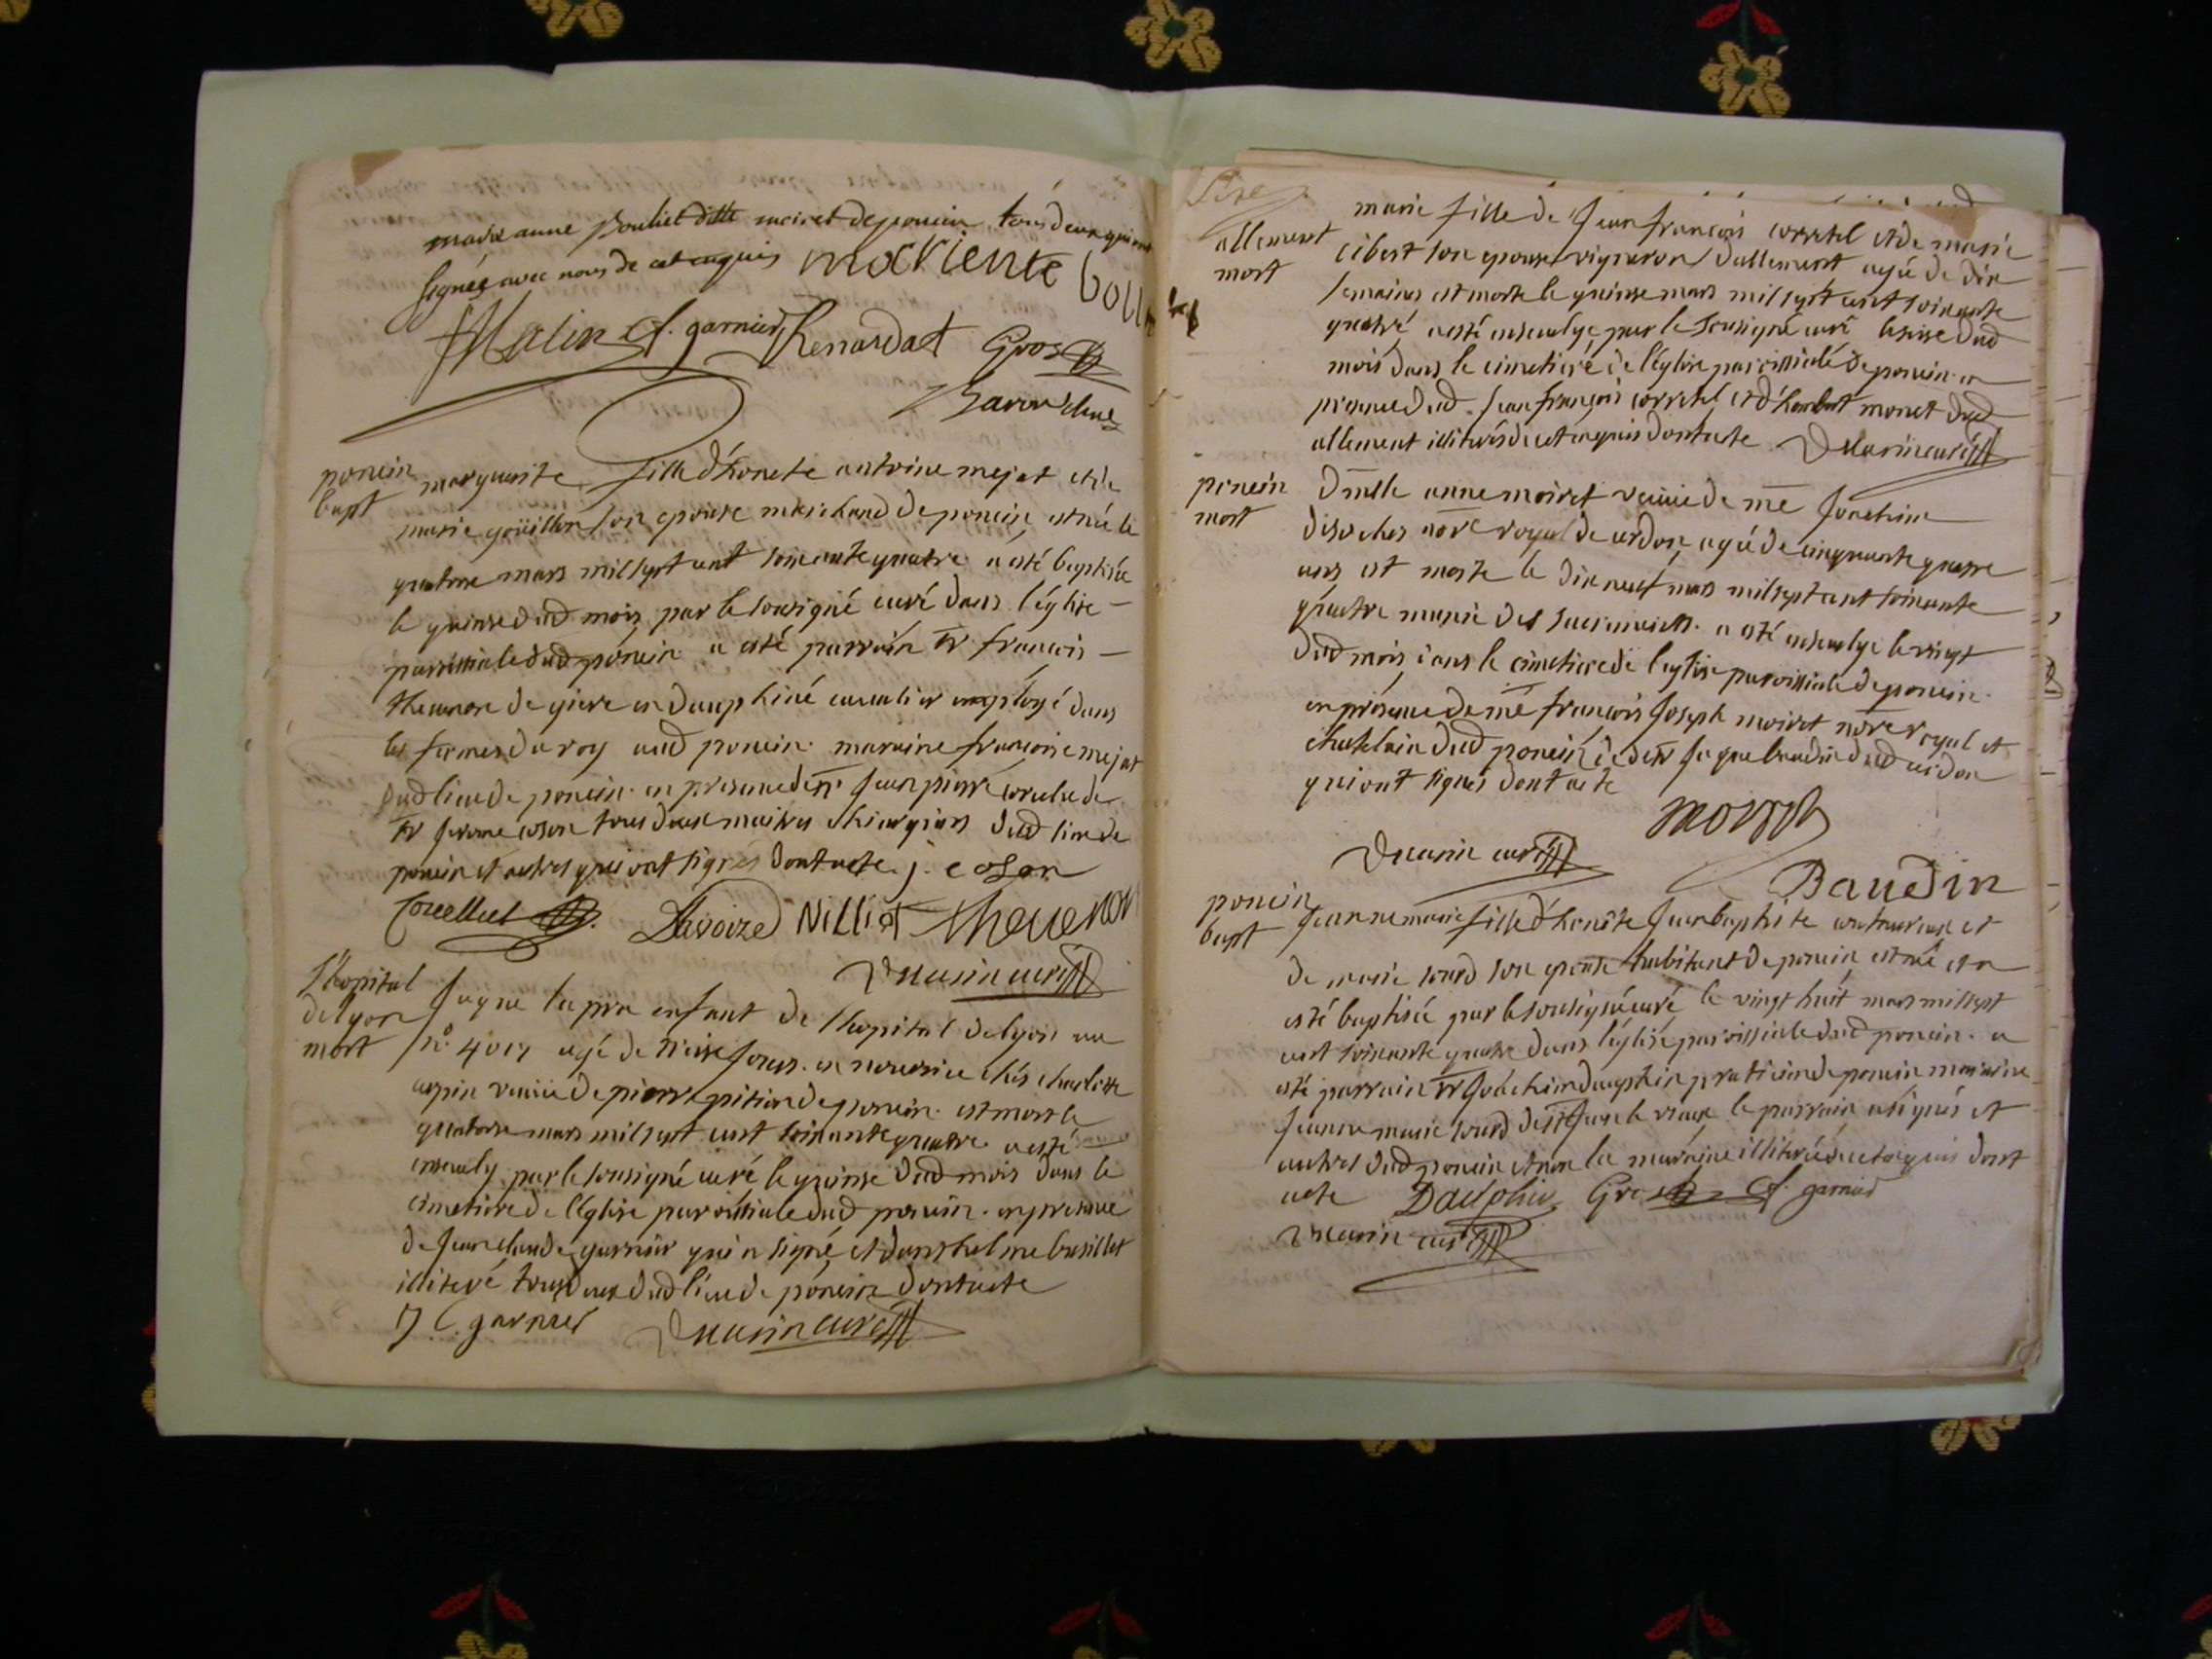 marie anne bouliet ditte moiret de poncin tous deux qui ont
signés avec nous de ce enquis marienne boull
Malin Cl. garnier Renardat Gros
Baron
poncin
bapt
marguerite fille d'honete antoine mejat et de
marie goüillon son epouse marchand de poncin est née le
quatorze mars mil sept cent soixante quatre a esté baptisée
le quinze dud mois par le sousigné curé dans l'église
parroissiale dud poncin a esté parrain sr francois
thevenon de giere en dauphiné cavalier employé dans
les fermes du roy aud poncin. maraine francoise mejat
dud lieu de poncin. en presence de sr jean pierre et de
sr jerome coson tous deux maitres chirurgiens dud lieu de
poncin et autres qui ont signés dont acte. j. coson
Lavoize Nilliot thevenon
Dumarin curé
l'hopital
de lyon
mort
jaque enfant de l'hopital de lyon au
no. 4017 agé de treise jours. en nourrice chés charlotte
veuve de pierre pition de poncin. est mort le
quatorze mars mil sept cent soixante quatre. a esté
ensevely par le sousigné curé le quinze dud mois dans le
cimetiere de l'église parroissiale dud poncin. en presence
de jean claude garnier qui a signé, et d'anthelme busillet
illiteré tous deux dud lieu de poncin dont acte
J. C. garnier Dumarin curé
allement
mort
marie fille de jean francois corretel et de marie
cibert son epouse vigneron d'allement agée de dix
semaines est morte le quinze mars mil sept cent soixante
quatre a esté ensevelye par le sousigné curé le seise dud
mois dans le cimetiere de l'église parroissiale de poncin en
presence dud. jean francois corretel et d'humbert monet dud
allement illiterés de ce enquis dont acte Dumarin curé
poncin
mort
dmlle anne moiret veuve de me joachim
desvches nore royal de cerdon, agée de cinquante quatre
ans est morte le dix neuf mars mil sept cent soixante
quatre munie des sacrements. a esté ensevelye le vingt
dud mois dans le cimetiere de l'eglise paroissiale de poncin.
en présence de me francois joseph moiret nore royal et
chatelain dud poncin, et de sr jaque baudin dud cerdon
qui ont signés dont acte
moiret
Dumarin curé
Baudin
poncin
bapt
jeanne marie fille d'honête jean baptiste et
de marie sourd son epouse habitant de poncin est née et a
esté baptisée par le sousigné curé le vingt huit mars mil sept
cent soixante quatre dans l'église paroissiale dud poncin. a
esté parrain sr joachim dauphin praticien de poncin maraine
jeanne marie sourd le vieux le parrain a signés et
autres dud poncin et non la maraine illiterée de ce enquis dont
acte Dauphin Gros Cl. garnier
Dumarin curé